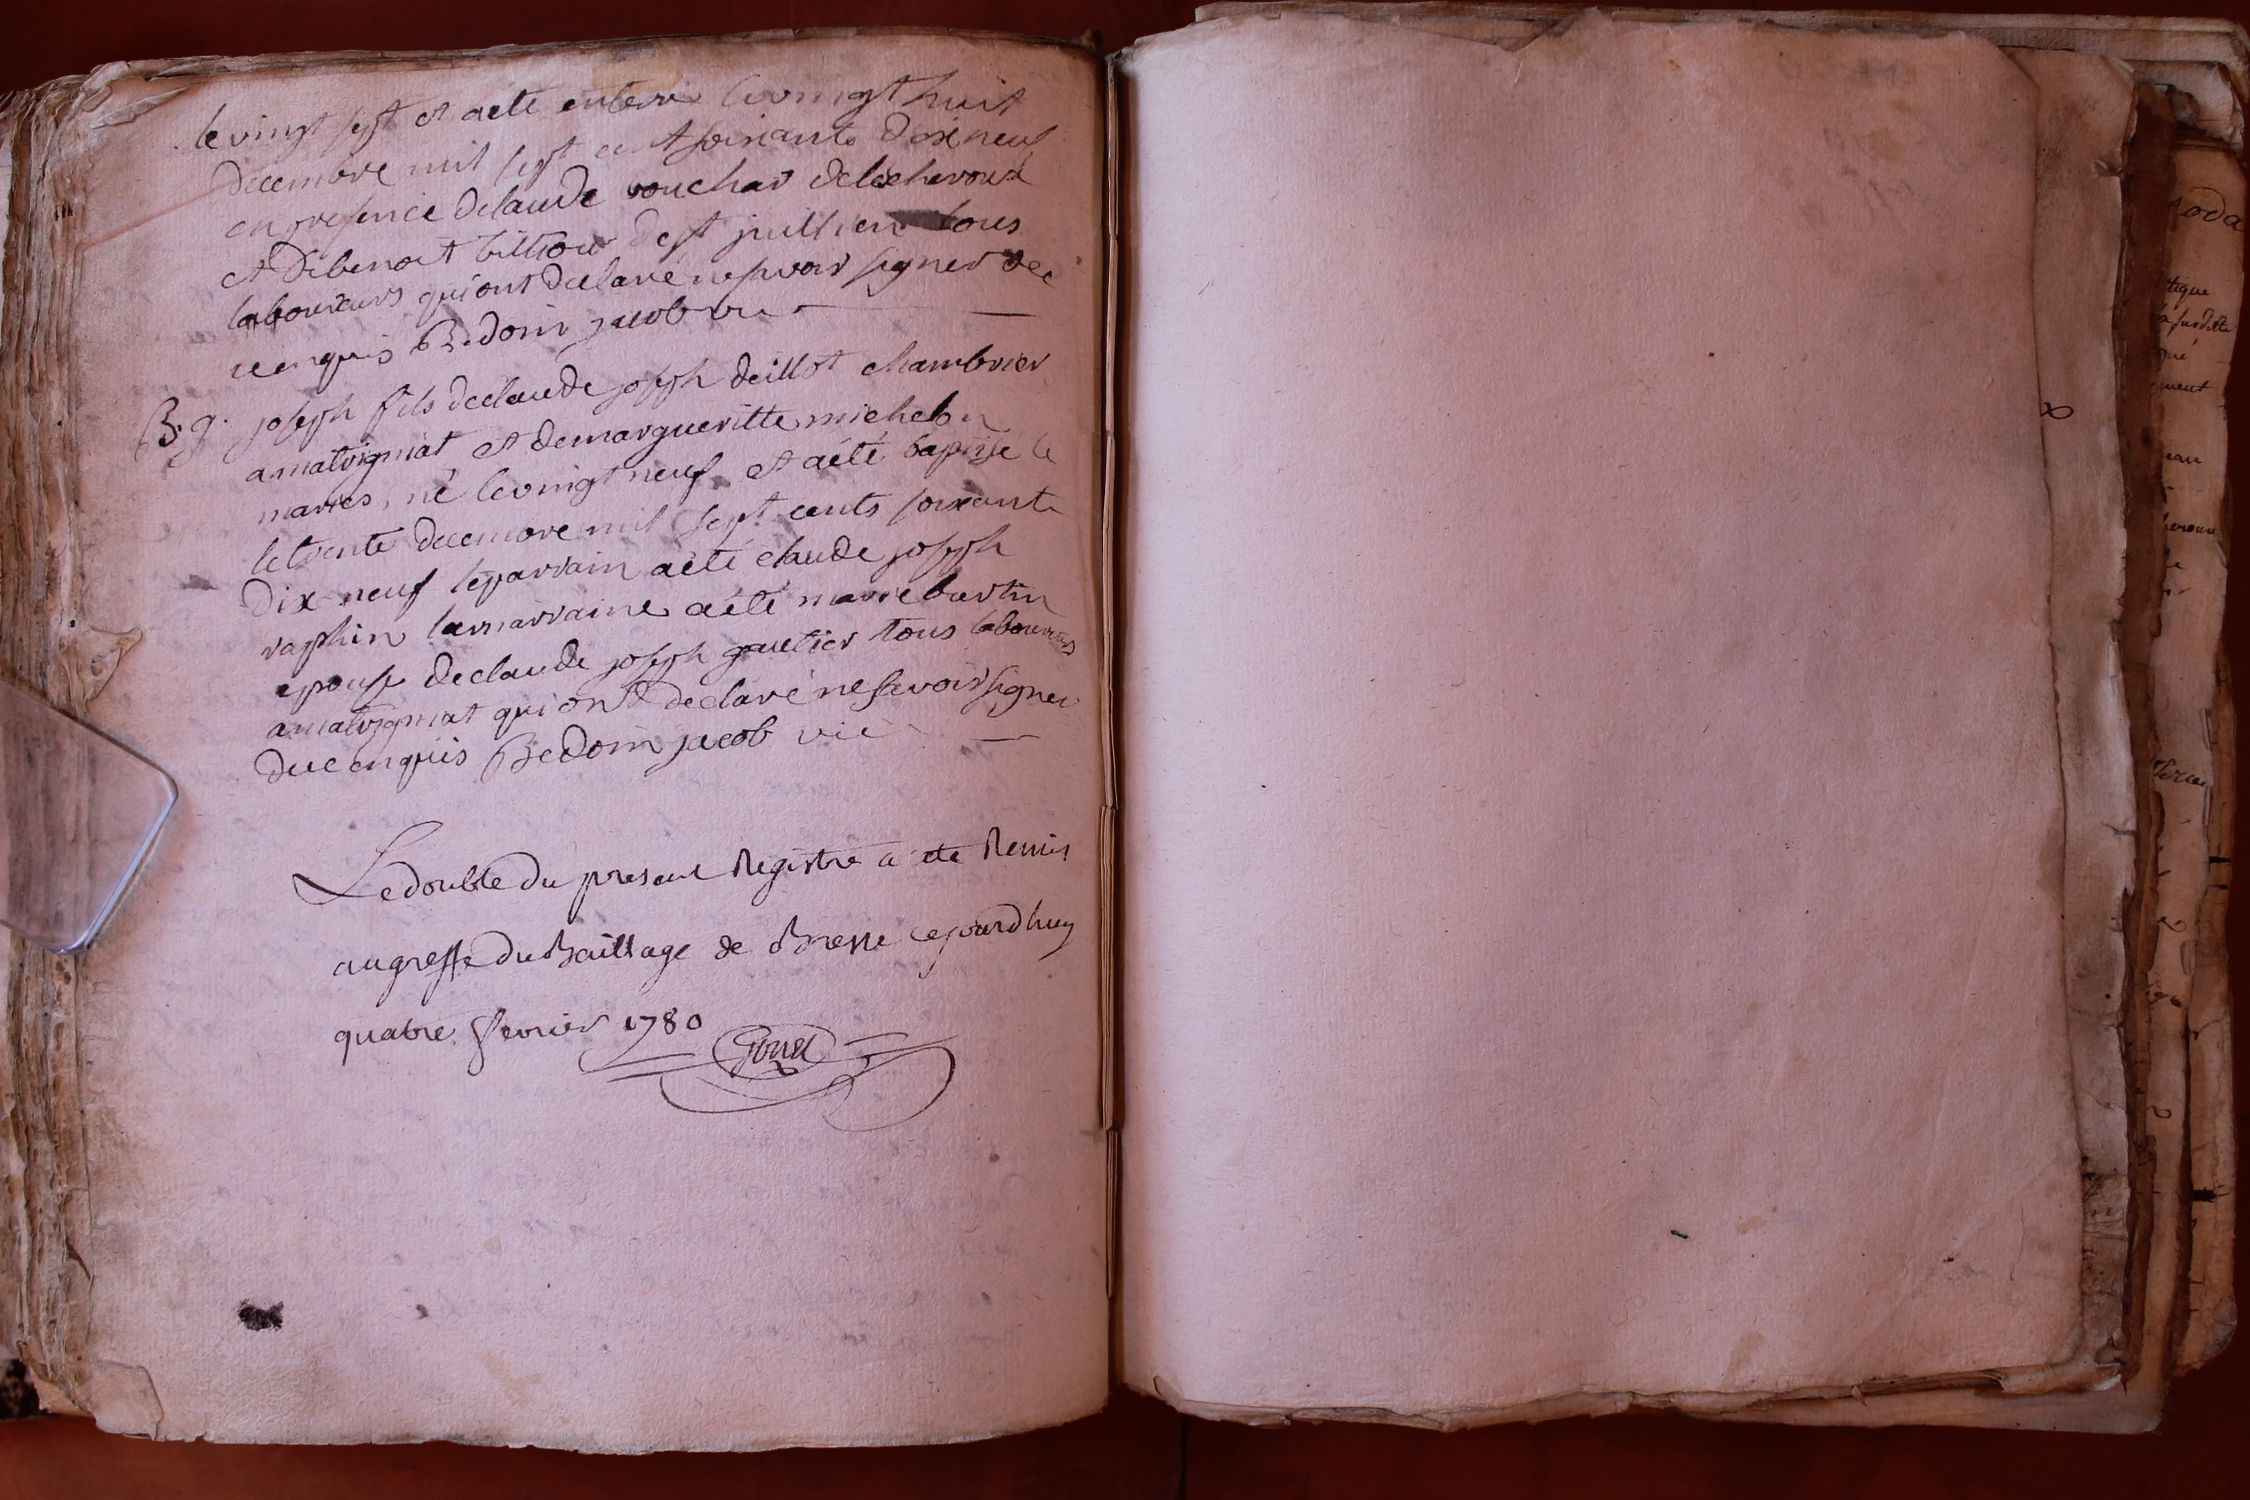 le vingt sept et aété enterré le vingt huit
decembre mil sept cent soixante dixneuf
en presence declaude vouchar delescheroux
et debenoit billioud dest jullien tous
laboureurs qui ont declaré nesavoir signer dece
enquis Bedoin jacob vic
B. g. joseph fils declaude joseph deillot chambrier
amalvigniat et demargueritte michelon
mariés, né levingt neuf et aété baptisé le
letrente decembre mil sept cents soixante
dix neuf leparrain aété claude joseph
raphin lamarraine aété marie burtin
epouse declaude joseph gautier tous laboureurs
amalvigniat qui ont declaré nesavoir signer
dece enquis Bedoin jacob vic
Ledouble du present Registre a été Remis
augreffe du Baillage de Bresse cejourdhuy
quatre fevrier 1780